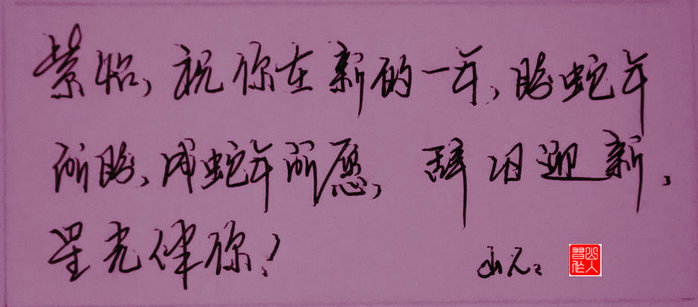 紫怡，祝你在新的一年，盼蛇年
所盼，成蛇年所愿，辞旧迎新，
星光伴你！
山人習作